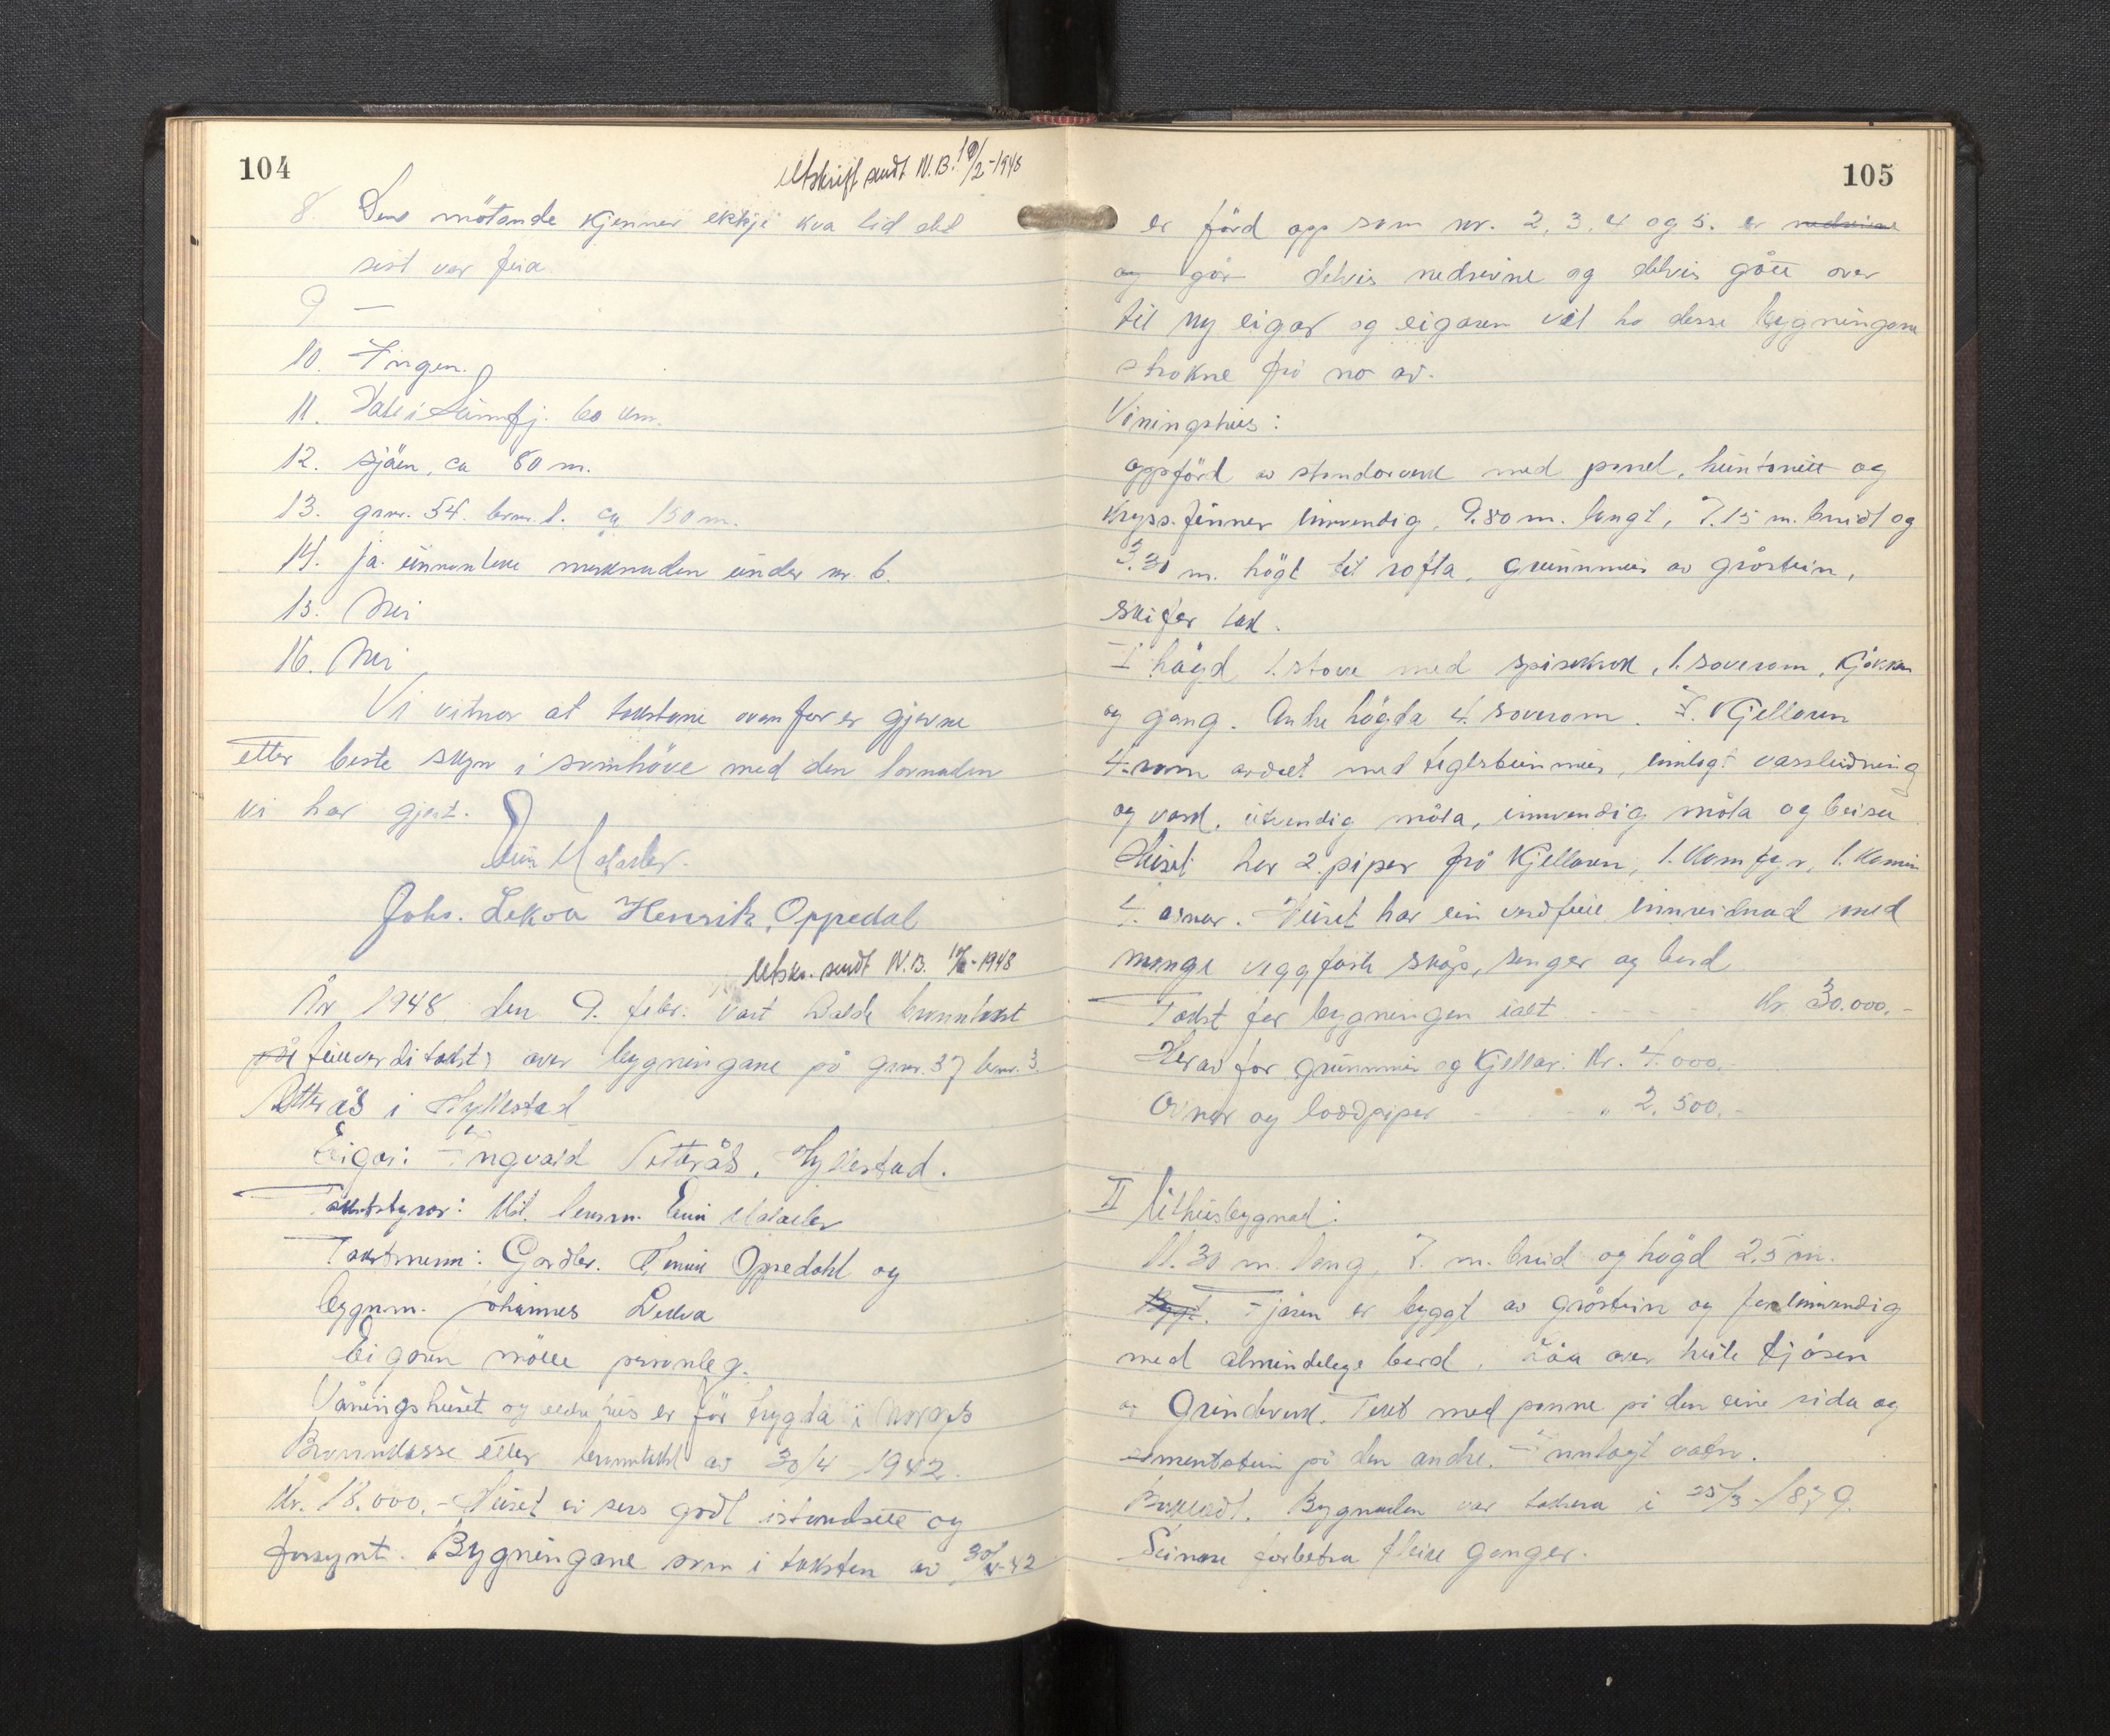 104
Utskrift sendt N.B. 10/2-1948
8. Dens mötande kjenner ikkje kva tid det
sist var feia.
9 —
10. Ingen.
11. Dale i Sunnfj. 60 km.
12. Sjöen, ca 80 m.
13. gnr. 54. brnr. 1. ca 150 m.
14. Ja. unnanteke merknaden under nr. 6.
15. Nei
16. Nei
Vi vitnar at takstane ovanfor er gjevne
etter beste skyn i samhöve med den
vi har gjort.
Johs. Lekva Henrik Oppedal
Utskr. sendt N.B. 10/2-1948
År 1948 den 9. febr. vart halde branntakst
på fulleverditakst; over bygningane på gnr. 37 brnr. 3.
i Hyllestad
Eigar: Ingvald Hyllestad.
Takststyrar: lensm.
Takstmenn: Gardbr. Oppedahl og
bygnm. Johannes Lekva
Eigaren mötte personleg.
Våningshuset og eldhus er för trygda i Norges
Brannkasse etter branntakst av 30/4-1942.
Kr. 18.000,- Huset er sers godt istandsett og
forsynt. Bygningane som i taksten av 30/4-42
105
er förd opp som nr. 2, 3, 4 og 5. er nedrivne
og går delvis nedrivne og delvis gått over
til ny eigar og eigaren vil ha desse bygningane
strokne frå no av.
Våningshus:
oppförd av standarverk med panel, huntonitt og
kryss-finner innvendig, 9.80 m. langt, 7.15 m. breidt og
5.30 m. högt til rofta, grunnmur av gråstein,
skifer tak.
I högd 1. stove med spisekrok, 1. soverom, kjökken
og gang. Andre högda 4. soverom. I. Kjellaren
4. rom avdelt med teglsteinmur, innlagt vassleidning
og vask, utvendig måla, innvendig måla og beisa
Huset har 2 piper frå kjellaren, 1. komfyr, 1. kamin
4. omnar. Huset har ein verdfull innreidnad med
mange veggfaste skåp, senger og bord
Takst for bygningen ialt - - Kr. 30.000.-
Herav for grunnmur og kjellar: Kr. 4.000.-
Omnar og loddpiper - - " 2.500.-
II Uthusbygnad:
11.30 m. lang, 7. m. breid og högd 2,5 m.
Bygt. Fjösen er byggt av gråstein og innvendig
med almindelege bord, over heile fjösen
av Grindverk. Tekt med panne på den eine sida og
sementstein på den andre. Innlagt vatn.
Bygnaden var taksera i 25/3-1879.
Seinare forbetra fleire gonger.